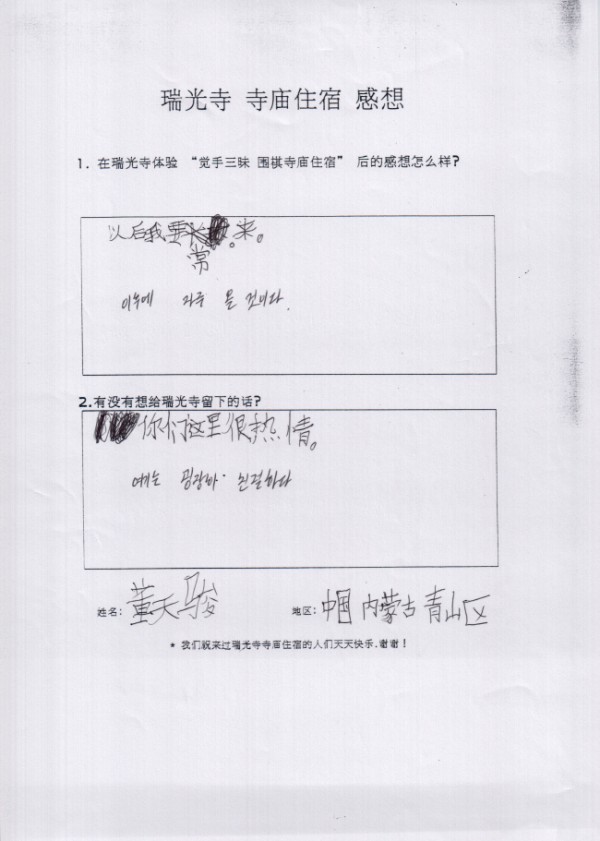 瑞光寺 寺庙住宿 感想
1. 在瑞光寺体验 “觉手三昧 围棋寺庙住宿” 后的感想怎么样?
以后我要常来。
이후에 자주 올 것이다.
2.有没有想给瑞光寺留下的话?
你们这里很热情。
여기는 굉장히 친절하다
姓名: 董天骏 地区: 中国 内蒙古 青山区
* 我们祝来过瑞光寺寺庙住宿的人们天天快乐.谢谢!